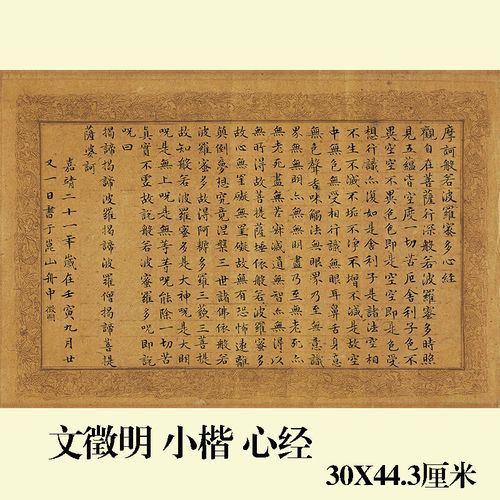 摩訶般若波羅蜜多心經
觀自在菩薩行深般若波羅蜜多時照
見五蘊皆空度一切苦厄舍利子色不
異空空不異色色即是空空即是色受
想行識亦復如是舍利子是諸法空相
不生不滅不垢不淨不增不減是故空
中無色無受想行識無眼耳鼻舌身意
無色聲香味觸法無眼界乃至無意識
界無無明亦無無明盡乃至無老死亦
無老死盡無苦集滅道無智亦無得以
無所得故菩提薩埵依般若波羅蜜多
故心無罣礙無罣礙故無有恐怖遠離
顛倒夢想究竟涅槃三世諸佛依般若
波羅蜜多故得阿耨多羅三藐三菩提
故知般若波羅蜜多是大神呪是大明
呪是無上呪是無等等呪能除一切苦
真實不虛故說般若波羅蜜多呪即說
呪曰
揭諦揭諦波羅揭諦波羅僧揭諦菩提
薩婆訶
嘉靖二十一年歲在壬寅九月廿
又一日書于崑山舟中 徵明
文徵明 小楷 心经
30X44.3厘米